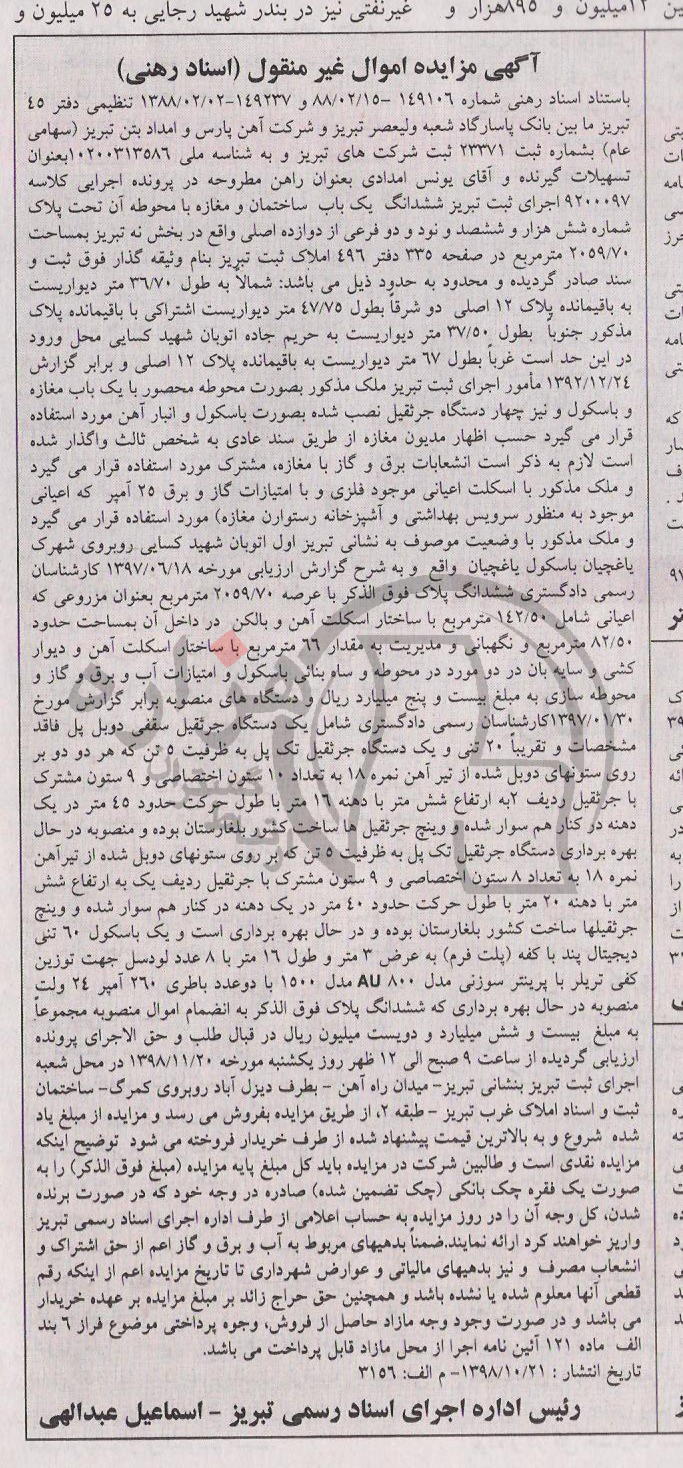 ین ۱۲میلیون و ۸۹۵هزار و غیرنفتی نیز در بندر شهید رجایی به ۲۵ میلیون و
آگهی مزایده اموال غیر منقول (اسناد رهنی)
باستناد اسناد رهنی شماره ۱۴۹۱۰۶ -۸۸/۰۲/۱۵ و ۱۴۹۲۳۷-۱۳۸۸/۰۲/۰۲ تنظیمی دفتر ۴۵
تبریز ما بین بانک پاسارگاد شعبه ولیعصر تبریز و شرکت آهن پارس و امداد بتن تبریز (سهامی
عام) بشماره ثبت ۲۳۳۷۱ ثبت شرکت های تبریز و به شناسه ملی ۱۰۲۰۰۳۱۳۵۸۶بعنوان
تسهیلات گیرنده و آقای یونس امدادی بعنوان راهن مطروحه در پرونده اجرایی کلاسه
۹۲۰۰۰۹۷ اجرای ثبت تبریز ششدانگ یک باب ساختمان و مغازه با محوطه آن تحت پلاک
شماره شش هزار و ششصد و نود و دو فرعی از دوازده اصلی واقع در بخش نه تبریز بمساحت
۲۰۵۹/۷۰ مترمربع در صفحه ۳۳۵ دفتر ۴۹۶ املاک ثبت تبریز بنام وثیقه گذار فوق ثبت و
سند صادر گردیده و محدود به حدود ذیل می باشد: شمالاً به طول ۳۶/۷۰ متر دیواریست
به باقیمانده پلاک ۱۲ اصلی دو شرقاً بطول ۴۷/۷۵ متر دیواریست اشتراکی با باقیمانده پلاک
مذکور جنوباً بطول ۳۷/۵۰ متر دیواریست به حریم جاده اتوبان شهید کسایی محل ورود
در این حد است غرباً بطول ۶۷ متر دیواریست به باقیمانده پلاک ۱۲ اصلی و برابر گزارش
۱۳۹۲/۱۲/۲۴ مأمور اجرای ثبت تبریز ملک مذکور بصورت محوطه محصور با یک باب مغازه
و باسکول و نیز چهار دستگاه جرثقیل نصب شده بصورت باسکول و انبار آهن مورد استفاده
قرار می گیرد حسب اظهار مدیون مغازه از طریق سند عادی به شخص ثالث واگذار شده
است لازم به ذکر است انشعابات برق و گاز با مغازه، مشترک مورد استفاده قرار می گیرد
و ملک مذکور با اسکلت اعیانی موجود فلزی و با امتیازات گاز و برق ۲۵ آمپر که اعیانی
موجود به منظور سرویس بهداشتی و آشپزخانه رستوارن مغازه) مورد استفاده قرار می گیرد
و ملک مذکور با وضعیت موصوف به نشانی تبریز اول اتوبان شهید کسایی روبروی شهرک
یاغچیان باسکول یاغچیان واقع و به شرح گزارش ارزیابی مورخه ۱۳۹۷/۰۶/۱۸ کارشناسان
رسمی دادگستری ششدانگ پلاک فوق الذکر با عرصه ۲۰۵۹/۷۰ مترمربع بعنوان مزروعی که
اعیانی شامل ۱۴۲/۵۰ مترمربع با ساختار اسکلت آهن و بالکن در داخل آن بمساحت حدود
۸۲/۵۰ مترمربع و نگهبانی و مدیریت به مقدار ۶۶ مترمربع با ساختار اسکلت آهن و دیوار
کشی و سایه بان در دو مورد در محوطه و ساه بنائی باسکول و امتیازات آب و برق و گاز و
محوطه سازی به مبلغ بیست و پنج میلیارد ریال و دستگاه های منصوبه برابر گزارش مورخ
۱۳۹۷/۰۱/۳۰کارشناسان رسمی دادگستری شامل یک دستگاه جرثقیل سقفی دوبل پل فاقد
مشخصات و تقریباً ۲۰ تنی و یک دستگاه جرثقیل تک پل به ظرفیت ۵ تن که هر دو بر
روی ستونهای دوبل شده از تیر آهن نمره ۱۸ به تعداد ۱۰ ستون اختصاصی و ۹ ستون مشترک
با جرثقیل ردیف ۲به ارتفاع شش متر با دهنه ۱۶ متر با طول حرکت حدود ۴۵ متر در یک
دهنه در کنار هم سوار شده و وینچ جرثقیل ها ساخت کشور بلغارستان بوده و منصوبه در حال
بهره برداری دستگاه جرثقیل تک پل به ظرفیت ۵ تن که بر روی ستونهای دوبل شده از تیرآهن
نمره ۱۸ به تعداد ۸ ستون اختصاصی و ۹ ستون مشترک با جرثقیل ردیف یک به ارتفاع شش
متر با دهنه ۲۰ متر با طول حرکت حدود ۴۰ متر در یک دهنه در کنار هم سوار شده و وینچ
جرثقیلها ساخت کشور بلغارستان بوده و در حال بهره برداری است و یک باسکول ۶۰ تنی
دیجیتال پند با کفه (پلت فرم) به عرض ۳ متر و طول ۱۶ متر با ۸ عدد لودسل جهت توزین
کفی تریلر با پرینتر سوزنی مدل ۸۰۰ AU مدل ۱۵۰۰ با دوعدد باطری ۲۶۰ آمپر ۲۴ ولت
منصوبه در حال بهره برداری که ششدانگ پلاک فوق الذکر به انضمام اموال منصوبه مجموعاً
به مبلغ بیست و شش میلیارد و دویست میلیون ریال در قبال طلب و حق الاجرای پرونده
ارزیابی گردیده از ساعت ۹ صبح الی ۱۲ ظهر روز یکشنبه مورخه ۱۳۹۸/۱۱/۲۰ در محل شعبه
اجرای ثبت تبریز بنشانی تبریز- میدان راه آهن - بطرف دیزل آباد روبروی کمرگ- ساختمان
ثبت و اسناد املاک غرب تبریز - طبقه ۲، از طریق مزایده بفروش می رسد و مزایده از مبلغ یاد
شده شروع و به بالاترین قیمت پیشنهاد شده از طرف خریدار فروخته می شود توضیح اینکه
مزایده نقدی است و طالبین شرکت در مزایده باید کل مبلغ پایه مزایده (مبلغ فوق الذکر) را به
صورت یک فقره چک بانکی (چک تضمین شده) صادره در وجه خود که در صورت برنده
شدن، کل وجه آن را در روز مزایده به حساب اعلامی از طرف اداره اجرای اسناد رسمی تبریز
واریز خواهند کرد ارائه نمایند.ضمناً بدهیهای مربوط به آب و برق و گاز اعم از حق اشتراک و
انشعاب مصرف و نیز بدهیهای مالیاتی و عوارض شهرداری تا تاریخ مزایده اعم از اینکه رقم
قطعی آنها معلوم شده یا نشده باشد و همچنین حق حراج زائد بر مبلغ مزایده بر عهده خریدار
می باشد و در صورت وجود وجه مازاد حاصل از فروش، وجوه پرداختی موضوع فراز ۶ بند
الف ماده ۱۲۱ آئین نامه اجرا از محل مازاد قابل پرداخت می باشد.
تاریخ انتشار : ۱۳۹۸/۱۰/۲۱- م الف: ۳۱۵۶
رئیس اداره اجرای اسناد رسمی تبریز - اسماعیل عبدالهی